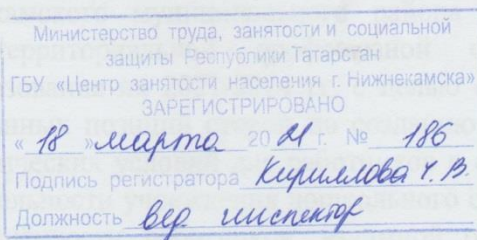 Министерство труда, занятости и социальной
защиты Республики Татарстан
ГБУ «Центр занятости населения г. Нижнекамска»
ЗАРЕГИСТРИРОВАНО
« 18 » марта 20 21 г. № 186
Подпись регистратора Кириллова Ч. В.
Должность вед. инспектор